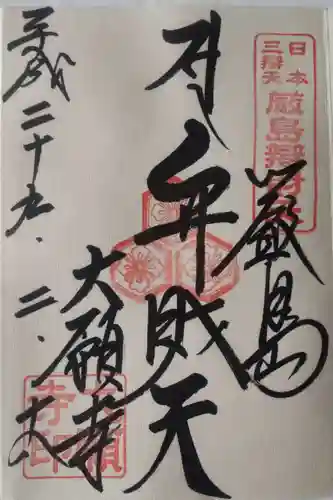 日本
三辯天
嚴島辯財天
嚴島
弁財天
大願寺
大願
寺印
平成二十九.二.